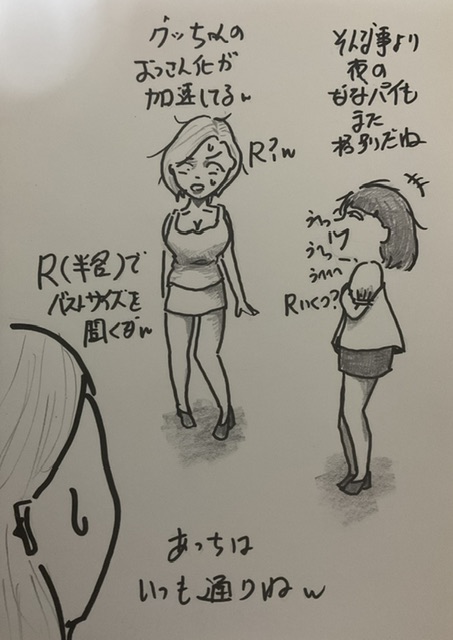 そんな事より
夜の
ななパイも
また
格別だね
うっ
うっ
うへへ
Rいくつ?
R?w
グッちゃんの
おっさん化が
加速してるw
R(半径)で
バストサイズを
聞くなw
あっちは
いつも通りねw